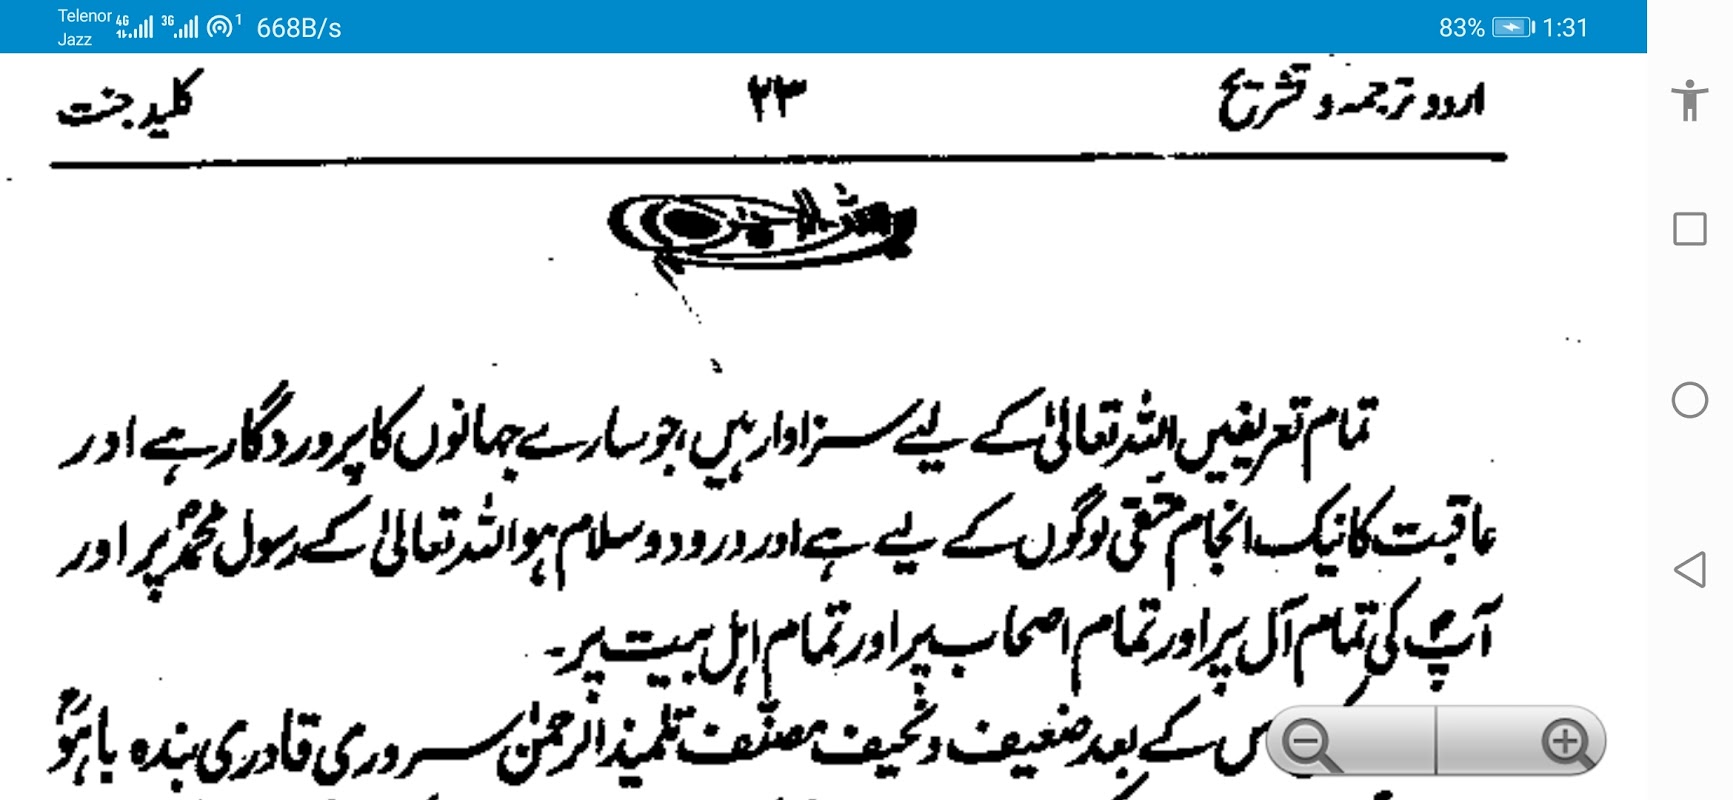 Telenor 4G 3G 1 668B/s 83% 1:31
Jazz
اردو ترجمہ و تشریح ۲۳ کلید جنت
تمام تعریفیں اللہ تعالیٰ کے لیے سزاوار ہیں، جو سارے جہانوں کا پروردگار ہے اور
عاقبت کا نیک انجام متقی لوگوں کے لیے ہے اور درود و سلام ہو اللہ تعالیٰ کے رسول محمدؐ پر اور
آپؐ کی تمام آل پر اور تمام اصحاب پر اور تمام اہل بیت پر۔
کے بعد ضعیف و نحیف مصنّف تلمیذ الرحمٰن سروری قادری بندہ باہوؒ